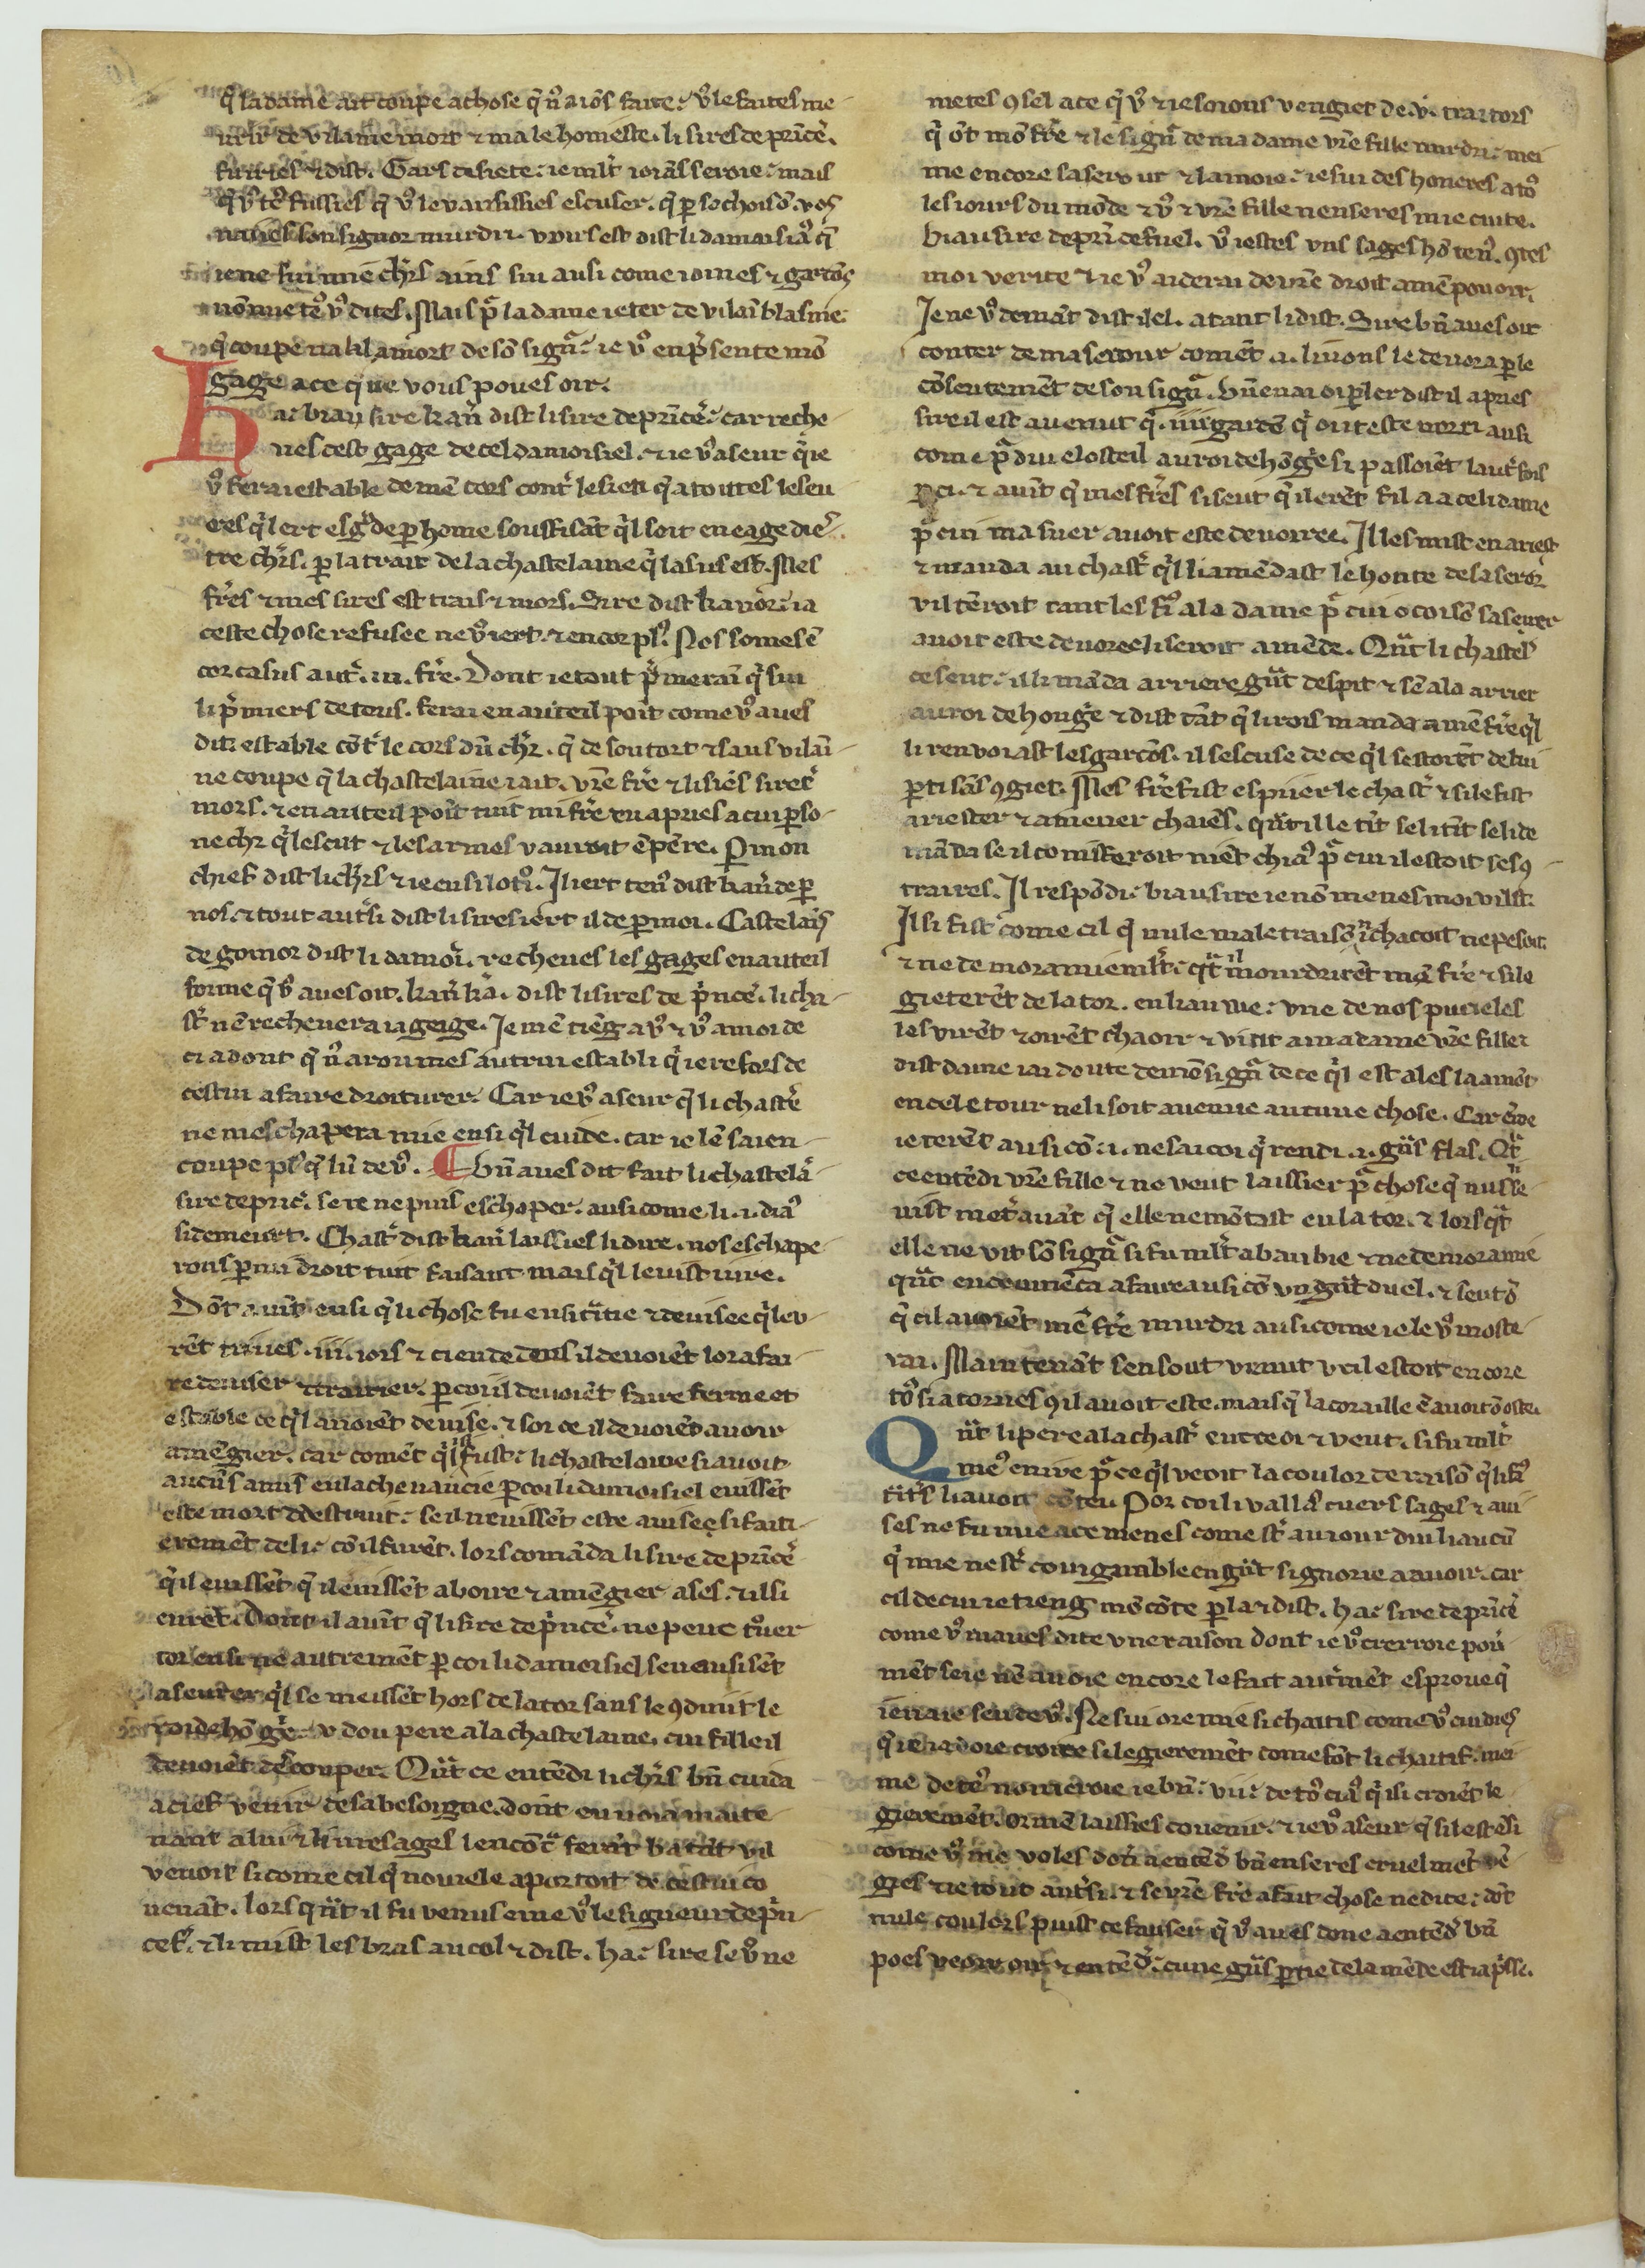 q̃ la dame ait coupe a chose q̃ nͦ aiōs faite. vͦ le faites me
ntir de vilaine mort ⁊ male honieste. li sires de prīcẽ.
fu iries ⁊ dist. Gars disiete. ie mlt̃ ioiās seroie. mais
q̃ vͦ teͦ fussies q̃ vͦ le vausissies escuser. q̃ p̱ sochoisō. vos
naues son signor murdri. voirs est dist li damoisiaͦ q̃
ie ne sui mie chr̃s ains sui ausi come ioines ⁊ garcōs
nōmie teͦ vͦ dites. Mais pᵃ la dame ieter de vilain blasme.
q̃ coupe na il a mort de sō signᵃ. ie vͦ en p̃sente mō
gage a ce que vous poues oir.
Ha biau sire kan̄ dist li sire de prīcẽ. car reche
ues cest gage de cel damoisiel. ⁊ ie vͦ aseur q̃ ie
vͦ ferai estable de mē cors contᵉ le sien q̃ a toutes les eu
res q̃l ert esgᵈe de p̱ home souffisāt q̃l soit en eage die
tre chr̃s. p̱ la trait de la chastelaine q̃ la sus est. Mes
fr̃es ⁊ mes sires est trais ⁊ mors. Sire dist kanor. ia
ceste chose refusee ne vͦ iert. ⁊ encor plͦ. Nos somes ē
cor casus autᵉ .iii. fr̃e. Dont ie tout p̃merai q̃ sui
li p̃miers de tous. ferai en auteil poīt come vͦ aues
dit. estable cōtᵉ le cors dū chr̃. q̃ de son tort ⁊ sans vilai
ne coupe q̃ la chastelaine i ait. vr̃e fr̃e ⁊ li siēs sires
mors. ⁊ en auteil poīt tuit mi fr̃e en apries a cui p̱so
ne chr̃ q̃ lescut ⁊ les armes vauroit ēpēre. P̱ mon
chief dist li chr̃s ⁊ ie ensi lotͦ. Il iert tenͦ dist kan̄ de p̱
nos. ⁊ tout autᵉsi dist li sires iert il de p̱ moi. Castelaīs
de gomor dist li damoi. recheues les gages en auteil
forme q̃ vͦ aues oit. kan̄ ka. dist li sires de p̃ncẽ. li cha
st̃ nē rechevera ia geige. Ie mē tiēg a vͦ ⁊ vͦ a moi de
ci a dont q̃ nͦ aroumes autrui establi q̃ iere fors de
cestui a faire droiturer. Car ie vͦ aseur q̃ li chastẽ
ne meschapera mie ensi q̃l cuide. car ie lē sai en
coupe plͦ q̃ lū de vͦ. ¶ Bn̄ aues dit fait li chastelā
sire de pric̃. se ie ne puis eschaper. ausi come li .i. diaͦ
si demeurt. Chast̃ dist kan̄ laissies li dire. nos eschape
rons p̱ mi droit tuit faisant mais q̃l le uist iure.
Dōt auīt ensi q̃ li chose fu ensi ātie ⁊ deuisee q̃ leu
rēt triues .iii. iors ⁊ ci en dedens il deuoiēt lor afai
re deuiser ⁊ traitier. p̱ coi il deuoiēt faire ferme et
estable ce q̃l auoiēt deuise. ⁊ sor ce il deuoiēt auoir
a mēgier. car comēt q̃l fust. li chastelains si auoit
aucūs amis en la chenancie p̱ coi li damoisiel euissēt
este mort ⁊ destruit. se il neuissēt este auises si faiti
eremēt de li. cō il furēt. lors comāda li sire de prīcẽ
q̃ il euissēt q̃ il euissēt a boire ⁊ a mēgier ases. ⁊ il si
eurēt. Dont il auīt q̃ li sire de p̃ncẽ. ne peut tͦuer
tor ensi ne autremēt p̱ coi li damoisiel sen ausisēt
aseurer q̃l se meissēt hors de la tor sans le 9duit le
roi de hōgẽ. v dou pere a la chastelaine. cui fille il
deuoiēt decouper. Qᵃt ce entēdi li chr̃s bn̄ cuida
a cief venir de sa besoigne. dont enuoia mainte
nant a lui ⁊ li mesages lencōtᵃ ferāt batāt vil
venoit si come cil q̃ nouiele aportoit de cestui co
uenāt. lors qᵃt il fu venus eme vͦ le signeur de prī
cef̃. ⁊ li mist les bras au col ⁊ dist. ha. sire se vͦ ne
metes 9sel a ce q̃ vͦ ⁊ ie soions vengiet de .v. traitors
q̃ ōt mō fr̃e ⁊ le signᵃ de ma dame vr̃e fille murdri. mei
me encore sa serour ⁊ la moie. ie sui deshoneres a toͦ
les iours du mōde ⁊ vͦ ⁊ vr̃e fille nen seres mie cuite.
Biau sire de prīcef uel. vͦ iestes vns sages hō tenͦ. 9tes
moi verite ⁊ ie vͦ aiderai de vr̃e droit a mē pouoir.
Ie ne vͦ demāt dist il el. atant li dist. Sire bn̄ aues oit
conter de ma serour comēt .i. lions le deuora p̱ le
cōsentemēt de son signᵃ. bn̄ en ai oi p̱ler dist il apries
sire il est auenut q̃ .iiii. garcō q̃ ont este norri ausi
come pᵃ diu el osteil au roi de hōgẽ si passoiēt lautᵉ fois
p̱ ci. ⁊ auīt q̃ mes fr̃es si seut q̃ il erēt fil a a celi dame
pᵃ cui ma suer auoit este deuoree. Il les mist en ariest
⁊ manda au chast̃ q̃l li amēdast le honte de sa seror
v il tēroit tant les fiͦ a la dame pᵃ cui ocoisō sa seuer
auoit este deuoree li seroit amēde. Qᵃt li chastelͦ
ce seut. il li māda arriere gᵃt despit ⁊ sē ala arrier
au roi de hongẽ ⁊ dist tāt q̃ li rois manda a mē fr̃e q̃l
li renuoiast les garcōs. il sescuse de ce q̃l sestoiēt de lui
p̱ti sās 9giet. Mes fr̃e fist espiier le chast̃ ⁊ si le fist
ariester ⁊ amener chaiēs. qᵃt il le tīt se li tīt se li de
māda se il comiseroit niēt chiaͦ pᵃ cui il estoit ses 9
traires. Il respōdi. biau sire ie nō menes moi v il st̃.
Il si fist come cil q̃ nule male traisō ni chacoit ne pesoit.
⁊ ne demora mie mlt̃. qᵃt il mourdrirēt mō fr̃e ⁊ si le
gieterēt de la tor. en liauwe. vne de nos pucieles
les virēt ⁊ oirēt chaoir ⁊ vīt a ma dame vr̃e fille ⁊
dist dame iai doute de mō signᵃ de ce q̃l est ales la amōt
en cele tour ne li soit auenue aucune chose. Car ēde
ieterēt ausi cō .i. ne sai coi q̃ rendi .i. gᵃs flas. Qᵃt
ce entēdi vr̃e fille ⁊ ne veut laissier pᵃ chose q̃ nus le
uist metᵉ auāt q̃ elle ne mōtast en la tor. ⁊ lors qᵃt
elle ne vit sō signᵃ si fu mlt̃ abaubie ⁊ ne demora mie
qᵃt en cōmēca a faire ausi cō vn gᵃt duel. ⁊ seut ō
q̃ cil auoiēt mē fr̃e murdri ausi come ie le vͦ moste
rai. Maintenāt sen sout vrāut v cil estoit encore
toͦ si atornes 9 il auoit este. mais q̃ la coraille ē auoit ō ostei.
Qᵃt li pere a la chast̃ entēt oi ⁊ veut. si fu mlt̃
meͦ en ire pᵃ ce q̃l veoit la coulor de raisō q̃ li fr̃
tit̃s li auoit cōteu. Por coi li vallas cuers sages ⁊ aui
ses ne fu mie a ce menes come st̃ au iour dui li aucū
q̃ mie nest̃ couignable en gᵃt signorie a auoir. car
cil de cui ie tieng mō cōte p̱la ⁊ dist. ha. sire de prīcẽ
come vͦ maues dite vne raison dont ie vͦ crerroie poū
mēt se ie nē auoie encore le fait autᵉmēt esproue q̃
ie naie seu de vͦ. Ne sui ore mie si chaitis come vͦ cuidies
q̃ ie iadoie croire si legieremēt come fōt li chaitif. mei
me de teͦ nonicroie ie bn̄. viı. de toͦ ciaͦ q̃ isi croiēt le
gieremēt. Or mē laissies couenir. ⁊ ie vͦ aseur q̃ sil est ēsi
come vͦ me voles don̄ a entēd bn̄ en seres cruelmēt vē
gies ⁊ ie tout autᵉsi. ⁊ se vr̃e fr̃e a fait chose ne dite. dōt
nule coulors puist ce fauser q̃ vͦ aues done a entēdᵉ bn̄
poes veoir oir ⁊ entēdᵉ. cune gᵃs p̱tie de la mēde est a p̃sse.